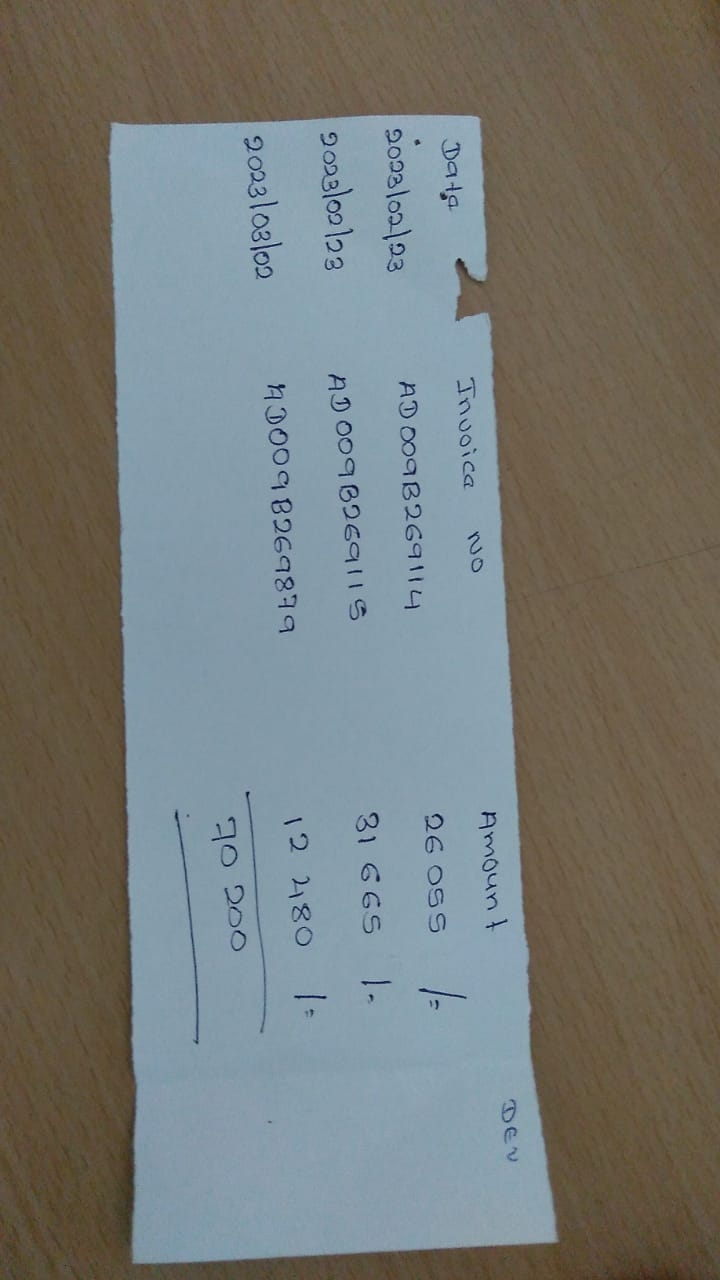 DEV
Date Invoice NO Amount
2023/02/23 AD009B269114 26 055 /=
2023/02/23 AD009B269115 31 665 /=
2023/03/02 AD009B269879 12 480 /=
70 200